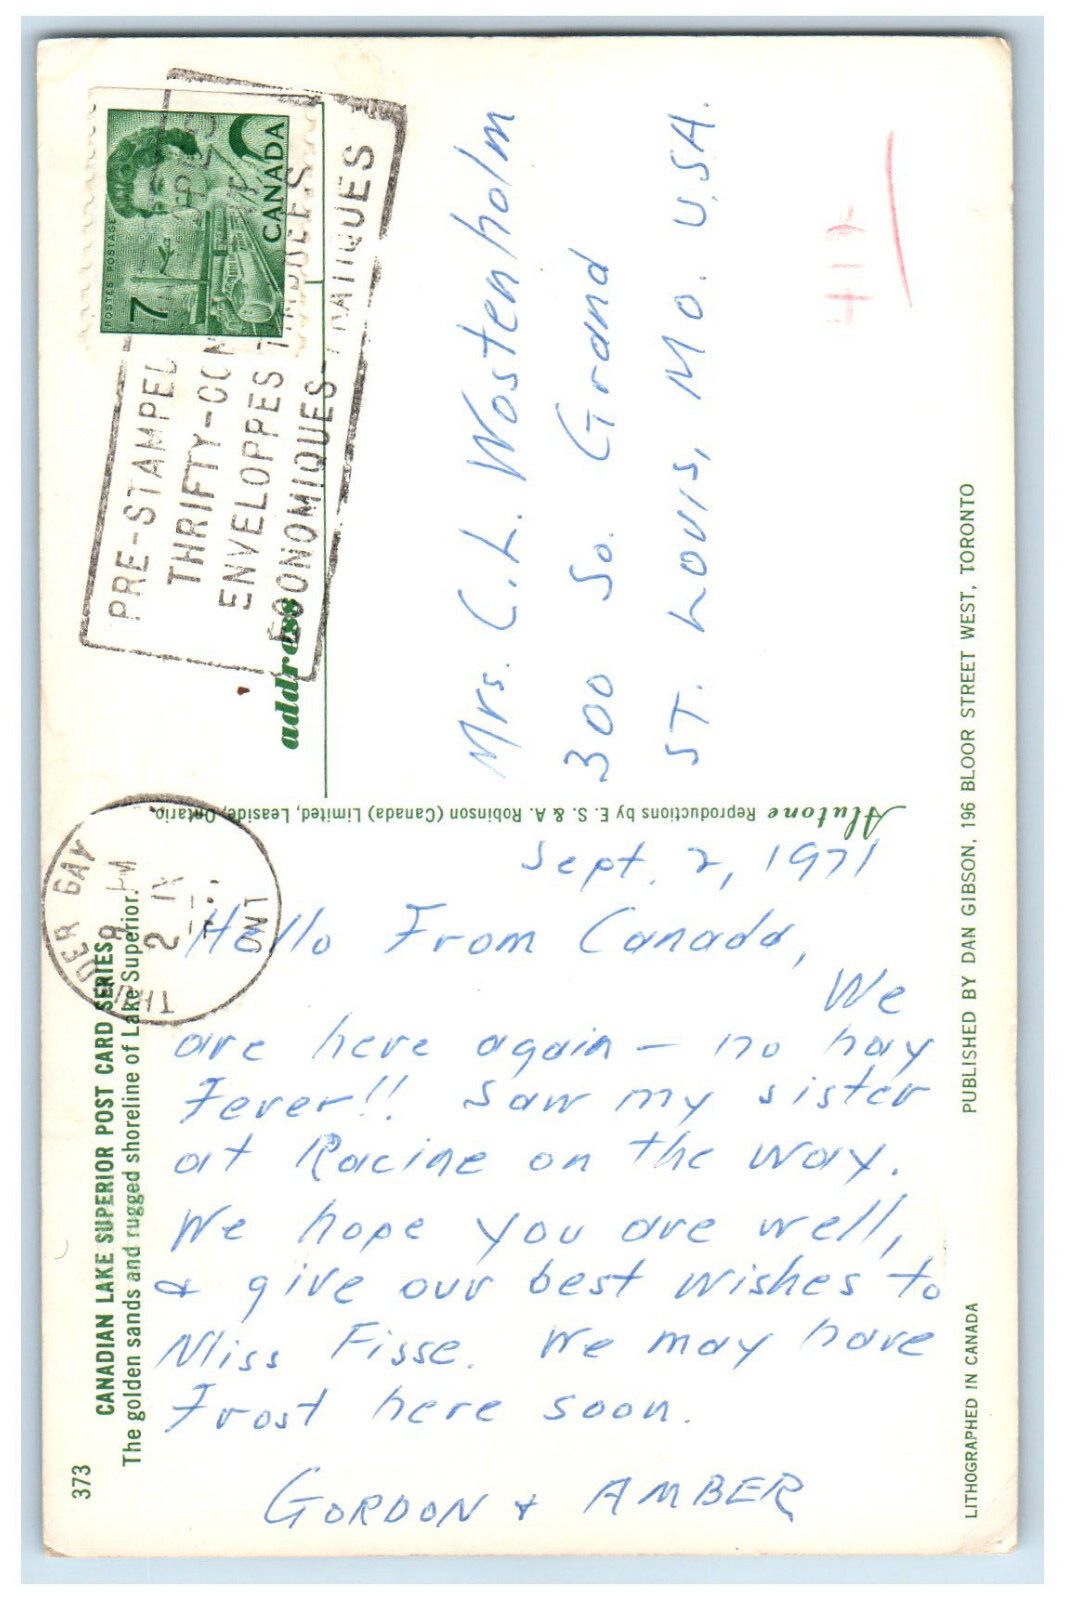 373
CANADIAN LAKE SUPERIOR POST CARD SERIES
The golden sands and rugged shoreline of Lake Superior.
THUNDER BAY
8 PM
2 IX
ONT
POSTES POSTAGE
7
CANADA
PRE-STAMPED
THRIFTY-CON
ENVELOPPES TIMBRÉES
ÉCONOMIQUES-PRATIQUES
address
Sept. 2, 1971
Hello From Canada,
We
are here again — no hay
Fever!! Saw my sister
at Racine on the way.
We hope you are well,
& give our best wishes to
Miss Fisse. We may have
Frost here soon.
GORDON & AMBER
Mrs. C.L. Wostenholm
300 So. Grand
ST. Louis, Mo. U.S.A.
Alutone Reproductions by E. S. & A. Robinson (Canada) Limited, Leaside, Ontario.
LITHOGRAPHED IN CANADA
PUBLISHED BY DAN GIBSON, 196 BLOOR STREET WEST, TORONTO